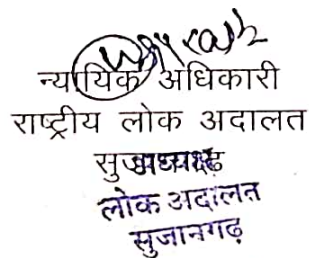 न्यायिक अधिकारी
राष्ट्रीय लोक अदालत
अध्यक्ष
लोक अदालत
सुजानगढ़